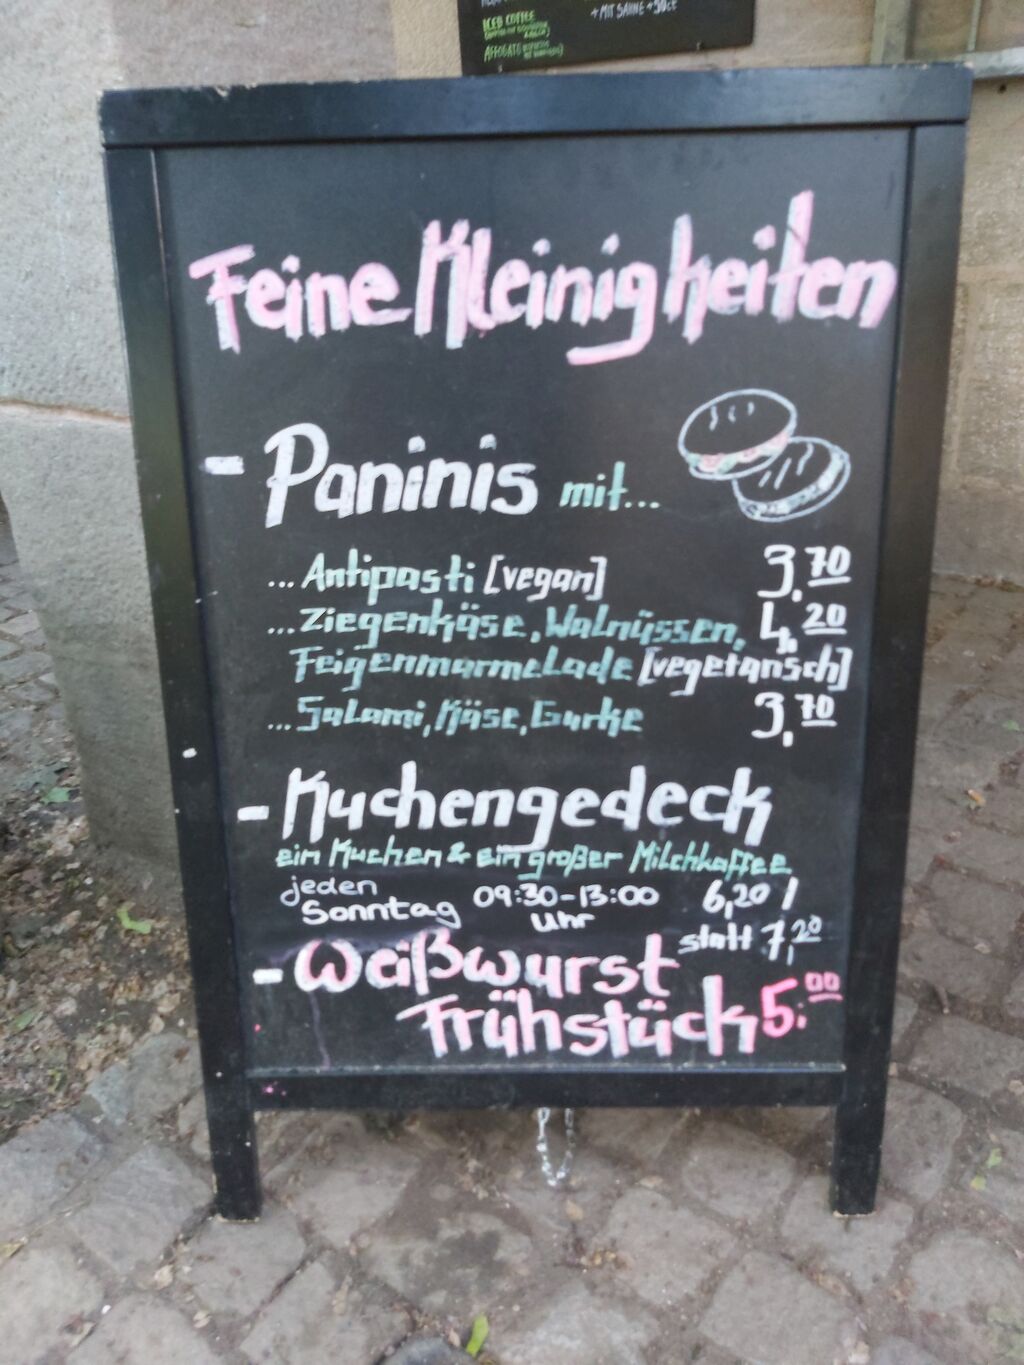 + MIT SAHNE + 50ct
ICED COFFEE
AFFOGATO
Feine Kleinigkeiten
- Paninis mit...
... Antipasti [vegan] 3,70
... Ziegenkäse, Walnüssen, 4,20
Feigenmarmelade [vegetarisch]
... Salami, Käse, Gurke 3,70
- Kuchengedeck
ein Kuchen & ein großer Milchkaffee
6,20 /
statt 7,20
jeden Sonntag 09:30-13:00 Uhr
- Weißwurst
Frühstück 5,00